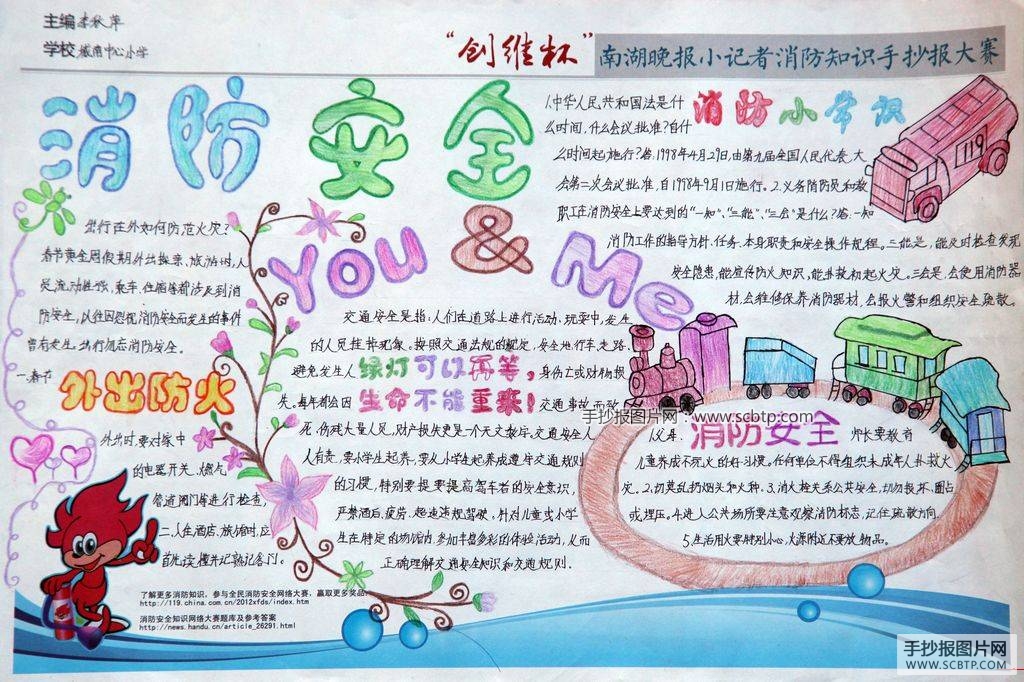 主编 李秋苹
学校 城南中心小学
“创维杯”南湖晚报小记者消防知识手抄报大赛
消防安全
&
You Me
消防小常识
1.中华人民共和国法是什
么时间,什么会议批准?自什
么时间起施行?答:1998年4月29日,由第九届全国人民代表大
会第二次会议批准,自1998年9月1日施行。2.义务消防员和救
职工在消防安全上要达到的“一知”、“三能”、“三会”是什么?答:一知
消防工作的指导方针、任务、本身职责和安全操作规程。三能是,能及时检查发现
安全隐患,能宣传防火知识,能扑救初起火灾。三会是,会使用消防器
材,会维修保养消防器材,会报火警和组织安全疏散。
119
出行在外如何防范火灾?
春节黄金周假期外出探亲、旅游时,人
员流动性强,乘车、住宿等都涉及到消
防安全,以往因忽视消防安全而发生的事件
曾有发生。出行勿忘消防安全。
一.春节
外出防火
外出时,要对家中
的电器开关、燃气
管道阀门等进行检查,
二.入住酒店、旅馆时,应
首先读懂并记熟记各门。
交通安全是指:人们在道路上进行活动、玩耍中,发生
的人员挂掉现象。按照交通法规的规定,安全地行车、走路,
避免发生人
绿灯可以再等,
身伤亡或财物损
失。每年都会因
生命不能重来!
交通事故而致
死、伤残大量人员,财产损失更是一个天文数字。交通安全人
人有责,要小学生起养,要从小学生起养成遵守交通规则
的习惯,特别要提要提高驾车者的安全意识,
严禁酒后、疲劳、超速违规驾驶。针对儿童或小学
生在特定的场馆内,参加丰富多彩的体验活动,从而
正确理解交通安全知识和交通规则.
消防安全
儿童养成不玩火的好习惯。任何单位不得组织未成年人扑救火
灾。2.切莫乱扔烟头和火种。3.消火栓关系公共安全,切勿损坏、圈占
或埋压。4.进入公共场所要注意观察消防标志,记住疏散方向.
5.生活用火要特别小心,火源附近不要放物品。
手抄报图片网:www.scbtp.com
了解更多消防知识,参与全民消防安全网络大赛,赢取更多奖品:
http://119.china.com.cn/2012xfds/index.htm
消防安全知识网络大赛题库及参考答案
http://news.handu.cn/article_26291.html
手抄报图片网
WWW.SCBTP.COM